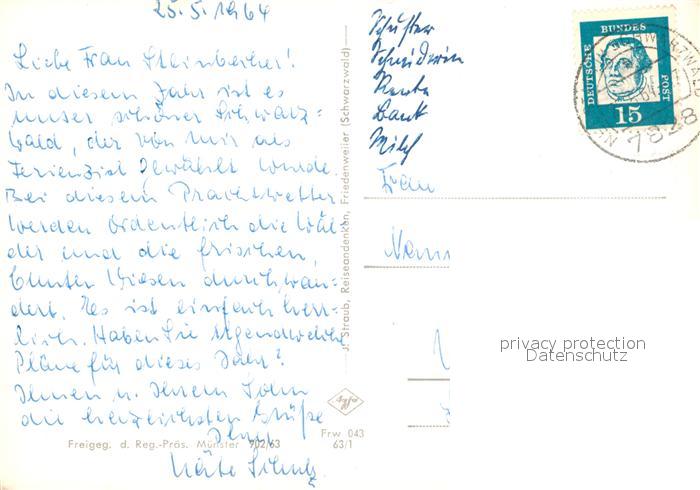 25.5.1964
Liebe Frau Steinbeiher!
In diesem Jahr ist es
unser schöner Schwarz=
wald, der von mir als
Ferienziel gewählt wurde.
Bei diesem Prachtwetter
werden ordentlich die Wäl-
der und die frischen,
bunten Wiesen durchwan=
dert. Es ist einfach herr-
lich. Haben Sie irgendwelche
Pläne für dieses Jahr?
Ihnen u. Ihrem Sohn
die herzlichsten Grüße
Ihre
Käte Schulz
Freigeg. d. Reg.-Präs. Münster 902/63
Frw 043
63/1
J. Straub, Reiseandenken, Friedenweiler (Schwarzwald)
Schuster
Schneiderin
Rente
Bank
Milch
Frau
DEUTSCHE
BUNDES
POST
15
7828
privacy protection
Datenschutz